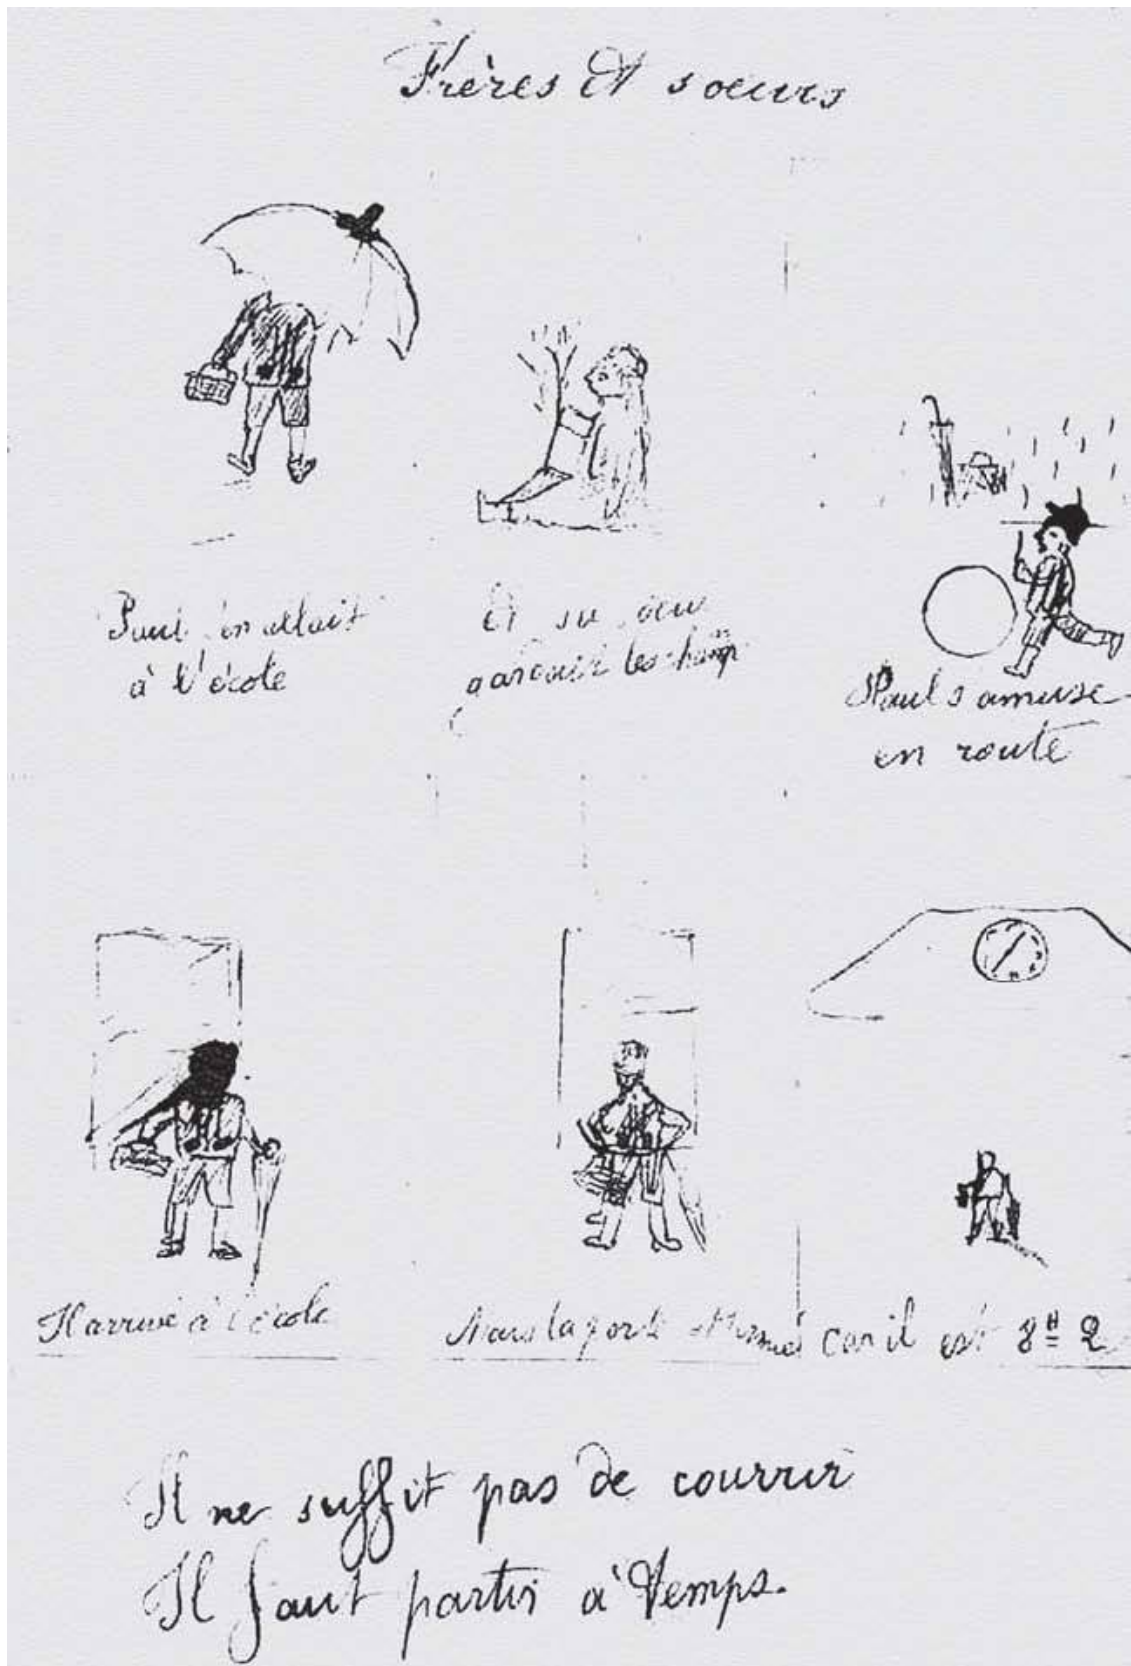 Frères Et soeurs
Paul s'en allait
à l'école
Et sa soeur
les champs
Paul s'amuse
en route
Il arrive à l'école
Mais la porte fermée car il est 8 H 2
Il ne suffit pas de courrir
Il faut partir à temps.